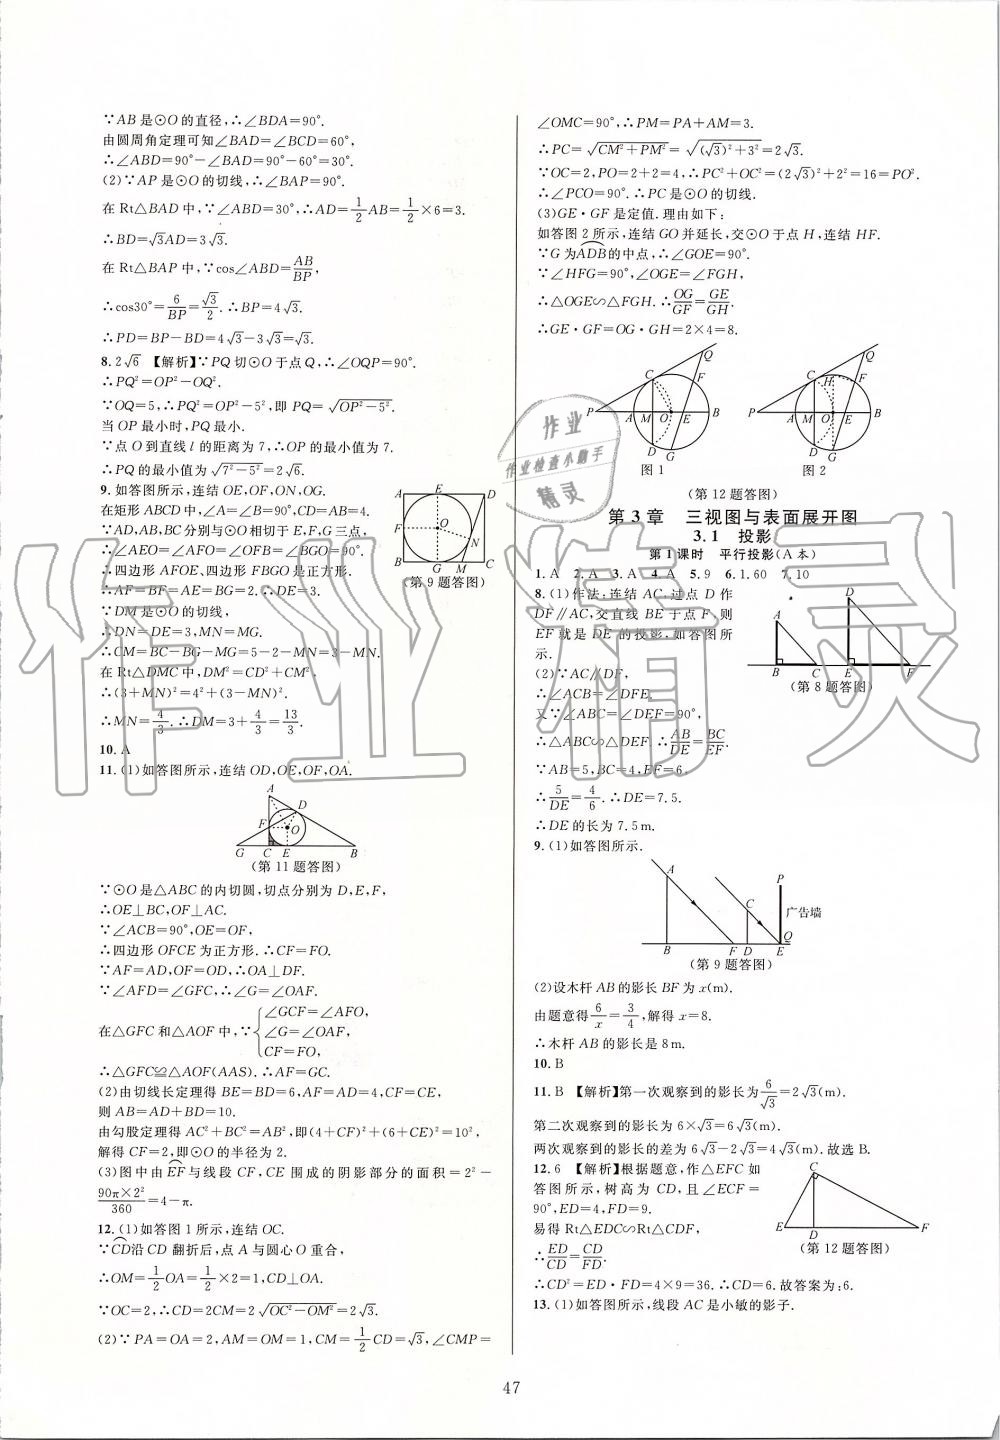 ∵AB是⊙O的直径,∴∠BDA=90°.
由圆周角定理可知∠BAD=∠BCD=60°,
∴∠ABD=90°-∠BAD=90°-60°=30°.
(2)∵AP是⊙O的切线,∴∠BAP=90°.
在Rt△BAD中,∵∠ABD=30°,∴AD=1/2AB=1/2×6=3.
∴BD=√3AD=3√3.
在Rt△BAP中,∵cos∠ABD=AB/BP,
∴cos30°=6/BP=√3/2.∴BP=4√3.
∴PD=BP-BD=4√3-3√3=√3.
8.2√6 【解析】∵PQ切⊙O于点Q,∴∠OQP=90°.
∴PQ²=OP²-OQ².
∵OQ=5,∴PQ²=OP²-5²,即PQ=√(OP²-5²).
当OP最小时,PQ最小.
∵点O到直线l的距离为7,∴OP的最小值为7.
∴PQ的最小值为√(7²-5²)=2√6.
9.如答图所示,连结OE,OF,ON,OG.
在矩形ABCD中,∠A=∠B=90°,CD=AB=4.
∵AD,AB,BC分别与⊙O相切于E,F,G三点,
∴∠AEO=∠AFO=∠OFB=∠BGO=90°.
∴四边形AFOE、四边形FBGO是正方形.
∴AF=BF=AE=BG=2.∴DE=3.
∵DM是⊙O的切线,
∴DN=DE=3,MN=MG.
∴CM=BC-BG-MG=5-2-MN=3-MN.
在Rt△DMC中,DM²=CD²+CM²,
∴(3+MN)²=4²+(3-MN)².
∴MN=4/3.∴DM=3+4/3=13/3.
A E D
F O
N
B G M C
(第9题答图)
10.A
11.(1)如答图所示,连结OD,OE,OF,OA.
A
D
F O
G C E B
(第11题答图)
∵⊙O是△ABC的内切圆,切点分别为D,E,F,
∴OE⊥BC,OF⊥AC.
∵∠ACB=90°,OE=OF,
∴四边形OFCE为正方形.∴CF=FO.
∵AF=AD,OF=OD,∴OA⊥DF.
∵∠AFD=∠GFC,∴∠G=∠OAF.
在△GFC和△AOF中,∵{∠GCF=∠AFO,
∠G=∠OAF,
CF=FO,
∴△GFC≌△AOF(AAS).∴AF=GC.
(2)由切线长定理得BE=BD=6,AF=AD=4,CF=CE,
则AB=AD+BD=10.
由勾股定理得AC²+BC²=AB²,即(4+CF)²+(6+CE)²=10²,
解得CF=2,即⊙O的半径为2.
(3)图中由⌒EF与线段CF,CE围成的阴影部分的面积=2²-
90π×2²/360=4-π.
12.(1)如答图1所示,连结OC.
∵⌒CD沿CD翻折后,点A与圆心O重合,
∴OM=1/2OA=1/2×2=1,CD⊥OA.
∵OC=2,∴CD=2CM=2√(OC²-OM²)=2√3.
(2)∵PA=OA=2,AM=OM=1,CM=1/2CD=√3,∠CMP=
∠OMC=90°,∴PM=PA+AM=3.
∴PC=√(CM²+PM²)=√((√3)²+3²)=2√3.
∵OC=2,PO=2+2=4,∴PC²+OC²=(2√3)²+2²=16=PO².
∴∠PCO=90°.∴PC是⊙O的切线.
(3)GE·GF是定值.理由如下:
如答图2所示,连结GO并延长,交⊙O于点H,连结HF.
∵G为⌒ADB的中点,∴∠GOE=90°.
∵∠HFG=90°,∠OGE=∠FGH,
∴△OGE∽△FGH.∴OG/GF=GE/GH.
∴GE·GF=OG·GH=2×4=8.
Q
C F
P A M O E B
D G
图1
Q
C H F
P A M O E B
D G
图2
(第12题答图)
第3章 三视图与表面展开图
3.1 投影
第1课时 平行投影(A本)
1.A 2.A 3.A 4.A 5.9 6.1.60 7.10
8.(1)作法:连结AC,过点D作
DF∥AC,交直线BE于点F,则
EF就是DE的投影,如答图所
示.
(2)∵AC∥DF,
∴∠ACB=∠DFE.
又∵∠ABC=∠DEF=90°,
∴△ABC∽△DEF.∴AB/DE=BC/EF.
∵AB=5,BC=4,EF=6,
∴5/DE=4/6.∴DE=7.5.
∴DE的长为7.5m.
D
A
B C E F
(第8题答图)
9.(1)如答图所示.
A P
C
广告墙
Q
B F D E
(第9题答图)
(2)设木杆AB的影长BF为x(m).
由题意得6/x=3/4,解得x=8.
∴木杆AB的影长是8m.
10.B
11.B 【解析】第一次观察到的影长为6/√3=2√3(m).
第二次观察到的影长为6×√3=6√3(m).
两次观察到的影长的差为6√3-2√3=4√3(m).故选B.
12.6 【解析】根据题意,作△EFC如
答图所示,树高为CD,且∠ECF=
90°,ED=4,FD=9.
易得Rt△EDC∽Rt△CDF,
∴ED/CD=CD/FD.
C
E D F
(第12题答图)
∴CD²=ED·FD=4×9=36.∴CD=6.故答案为:6.
13.(1)如答图所示,线段AC是小敏的影子.
47
作业
作业检查小助手
精灵
作业精灵